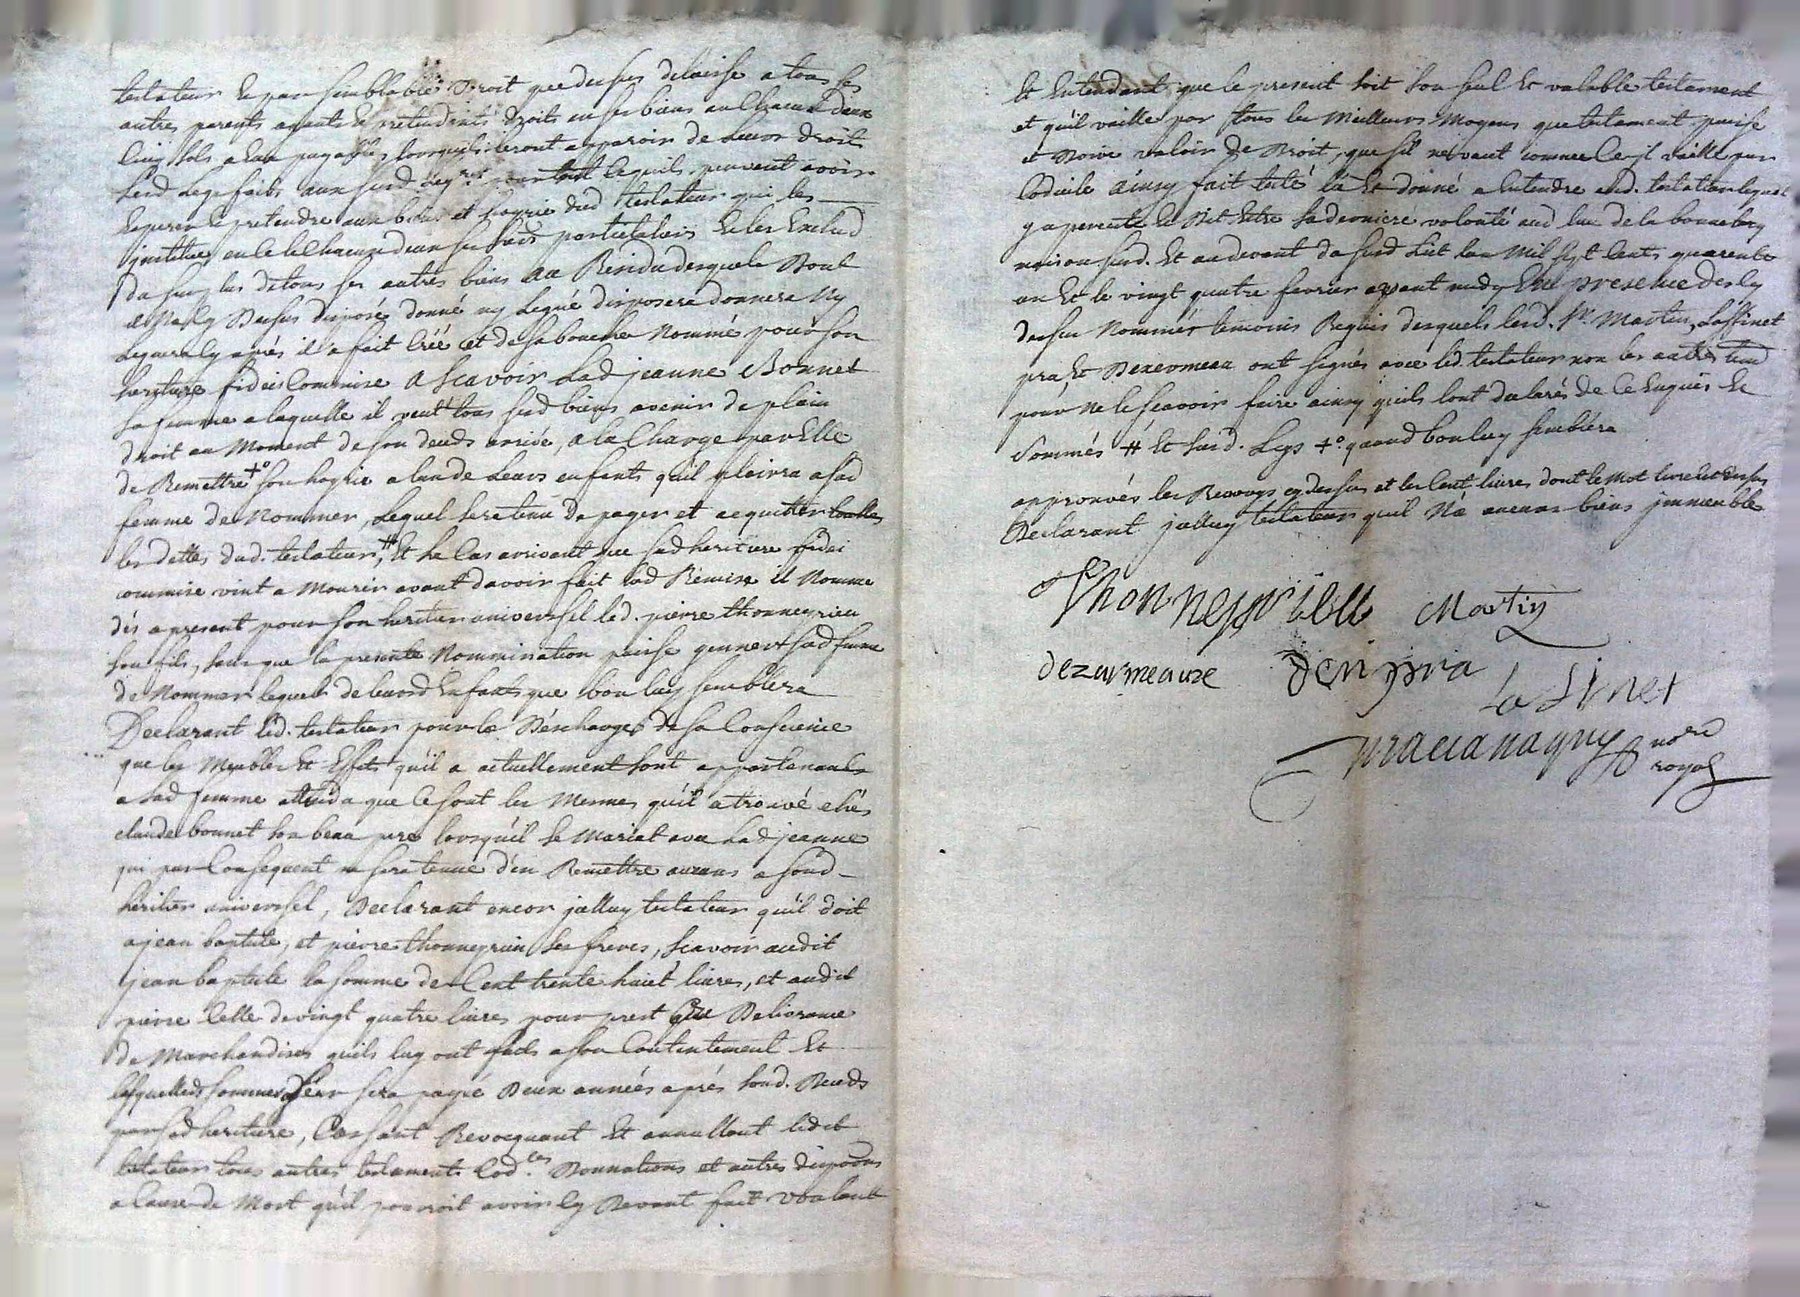 testateur et par semblable Droit que dessus delaisse a tous ses
autres parents ayants et pretendants droits en ses biens au Chacun deux
Cinq sols a eux payables lorsquils feront apparoir de Leurs droits
Lesd Legs faits aux susd. Leg.res pour tout Lequils peuvent avoir
Esperer et pretendre aux biens et hoyrie dud testateur qui les
jnstitue en Celle Chacun deux ses hoirs particuliers Et les Exclud
Du surplus de tous ses autres biens Au Residu desquels Dont
il Na Cy Dessus disposé donné ny Legué disposera donnera Ny
Leguera Cy aprés il a fait Créé et de sa bouche Nommé pour son
heritiere fideicommise A Scavoir Lad jeanne Bonnet
sa femme a laquelle il veut tous sesd biens avenir de plain
droit au Moment de son deceds arrivée, a la Charge par Elle
de Remettre +° son hoyrie a lun de Leurs enfants qu'il plairra a sad
femme de Nommer, Lequel sera tenu de payer et acquitter toutes
les dettes dud. testateur, # Et le Cas arrivant que sad heritiere fidei
commise vint a Mourir avant davoir fait lad Remise il Nomme
dés apresent pour son heritier universel led. pierre thonneyrieu
son fils, sans que la presente Nommination puisse genner sad femme
de Nommer lequel de leursd Enfants que bon luy semblera
Declarant led. testateur pour la Descharge de sa Conscience
que les Meubles Et Effets qu'il a actuellement sont appartenants
a sad femme attendu que Ce sont les Mesmes qu'il a trouvé chés
claude bonnet son beau pere lorsqu'il se Mariat avec Lad jeanne
qui par Consequent ne sera tenue d'en Remettre aucuns a soud
héritier universel, Declarant encor jcelluy testateur qu'il doit
a jean baptiste, et pierre thonneyrieu ses freres, Scavoir audit
jean baptiste la somme de Cent trente huict livres, et audit
pierre Celle de vingt quatre livres pour prest Ou Delivrance
de Marchandises qu'ils luy ont faits a son Contentement Et
lesquelles sommes leur sera payé Deux années aprés soud. Deceds
par sad heritiere, Cassant Revocquant Et annullant ledit
testateur tous autres testaments Cod.ces Donnations et autres dispo.ons
a Cause de Mort qu'il pourroit avoir Cy Devant fait Voulant
Et Entendant que le present soit son seul Et valable testament
et qu'il vaille par tous les Meilleurs Moyens que testament puisse
et Doive valoir de Droit, que s'il ne vaut comme Cetil vaille par
Codicile ainsy fait testé lû Et donné a Entendre aud. testateur lequel
y a persisté et Dit Estre sa derniere volonté aud lieu de la
maison susd. Et audevant de susd Lit Lan Mil sept Cents quarente
un Et le vingt quatre fevrier avant midy En presence des Cy
dessus Nommés temoins Requis desquels lesd. Sr. Martin, Lassinet
pra, Et Dezermeau ont signés avec led. testateur non les autres tem.
pour Ne le Scavoir faire ainsy qu'ils l'ont declarés de Ce Enquis Et
Sommés # Et susd. Legs +° quand bon luy semblera
approuvés les Renvoys cy dessus et les Cent livres dont le Mot livre Est Dessus
Declarant jcelluy testateur qu'il N'a aucuns biens jmmeuble
Thonneyrieu Martin
dezarmeauxe Denis pra
Lassinet
pracanaguy nore
royal